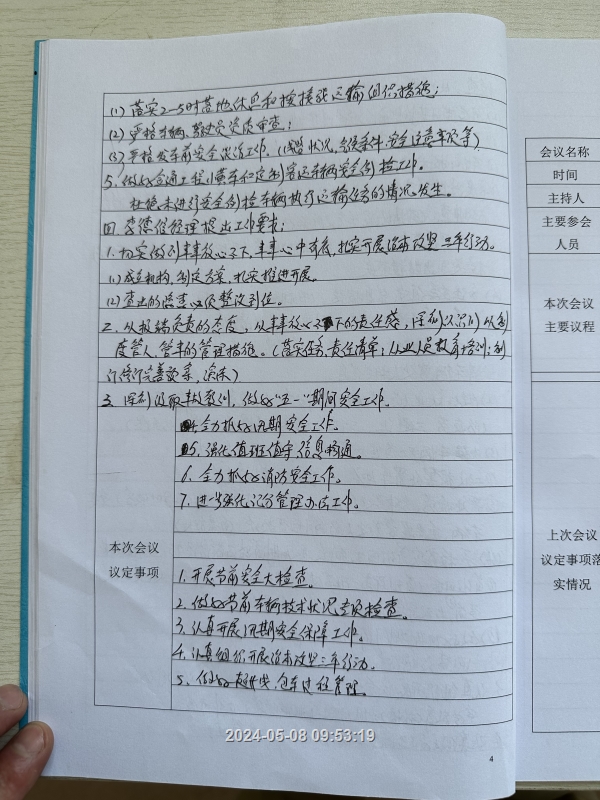 (1) 落实2-5时落地休息和接驳运输组织措施；
(2) 严格车辆、驾驶员资质审查；
(3) 严格发车前安全谈话工作。(线路状况、气候条件、安全注意事项等)
5、做好合通工程小黄车和定制客运车辆安全例检工作。
杜绝未进行安全例检车辆执行运输任务的情况发生。
四、经理提出工作要求；
1、切实做到事事放心不下、事事心中有底，扎实开展治本攻坚三年行动。
(1) 成立机构、制定方案、扎实推进开展。
(2) 查出的隐患必须整改到位。
2、从极端负责的态度，从事事放心不下的责任感，深刻认识以制
度管人、管车的管理措施。(落实任务、责任清单；从业人员教育培训；制
订修订完善)
3、深刻汲取事故教训，做好"五一"期间安全工作。
4、全力抓好汛期安全工作。
5、强化值班值守、信息畅通。
6、全力抓好消防安全工作。
7、进一步强化记分管理办法工作。
本次会议
议定事项
1、开展节前安全大检查。
2、做好节前车辆技术状况专项检查。
3、认真开展汛期安全保障工作。
4、认真组织开展治本攻坚三年行动。
5、做好超长线、包车过程管理。
2024-05-08 09:53:19
4
会议名称
时间
主持人
主要参会
人员
本次会议
主要议程
上次会议
议定事项落
实情况